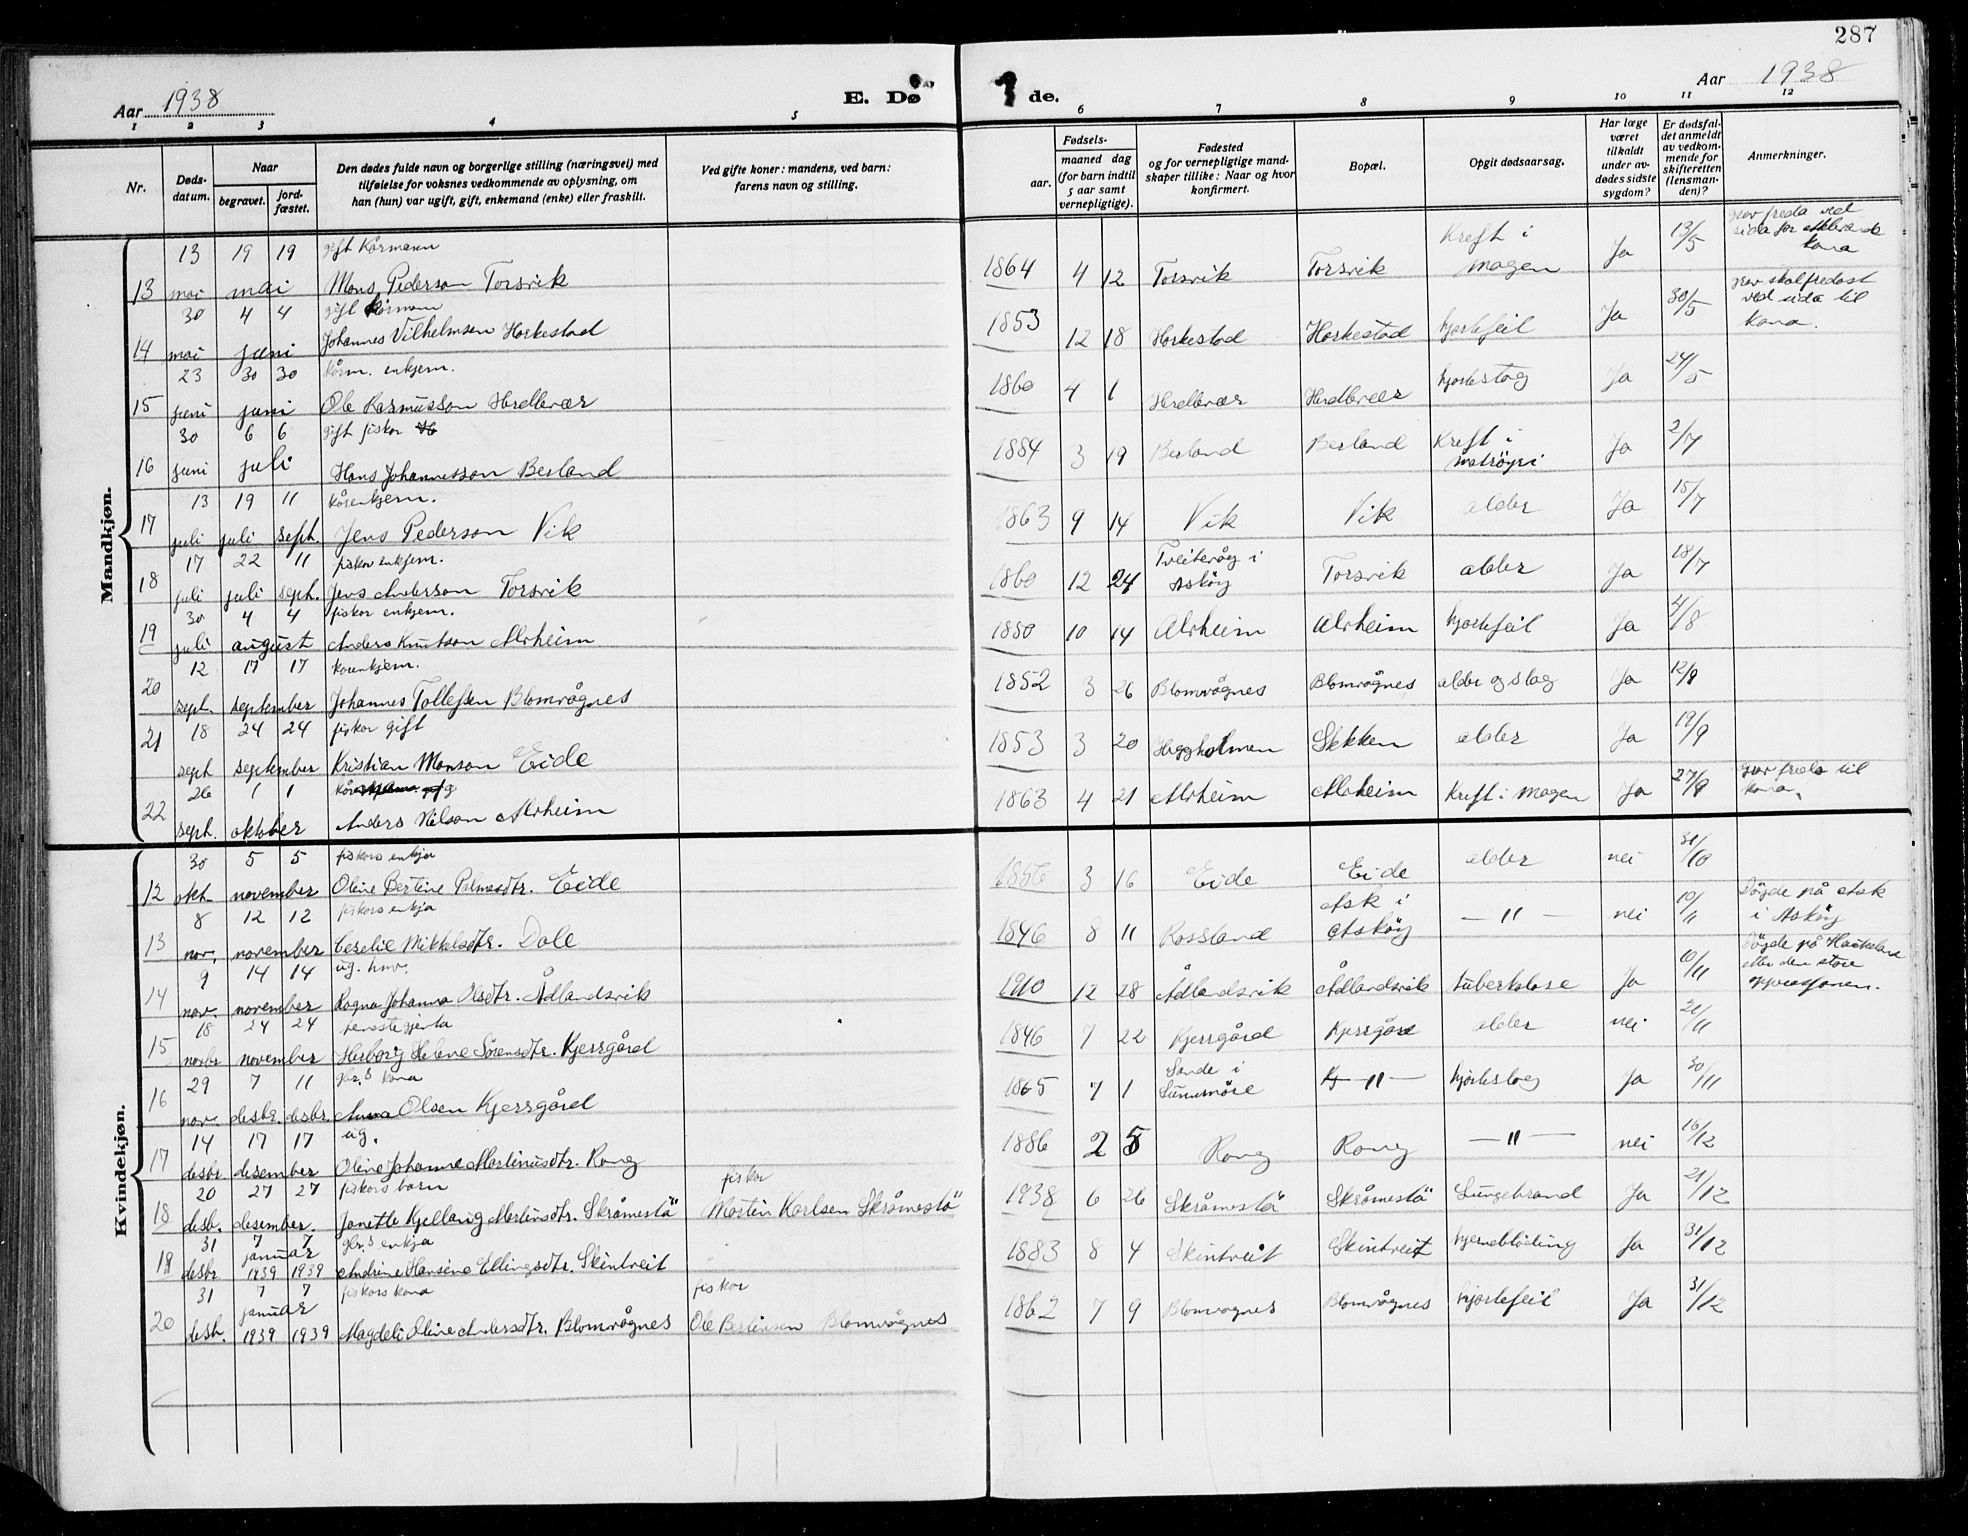 287
Aar 1938
E. Dø de.
Aar 1938
1 2 3 4 5 6 7 8 9 10 11 12
Nr.
Døds-
datum.
Naar
begravet.
jord-
fæstet.
Den dødes fulde navn og borgerlige stilling (næringsvei) med
tilføielse for voksnes vedkommende av oplysning, om
han (hun) var ugift, gift, enkemand (enke) eller fraskilt.
Ved gifte koner: mandens, ved barn:
farens navn og stilling.
Fødsels-
aar.
maaned dag
(for barn indtil
5 aar samt
vernepligtige).
Fødested
og for vernepligtige mand-
skaper tillike: Naar og hvor
konfirmert.
Bopæl.
Opgit dødsaarsag.
Har læge
været
tilkaldt
under av-
dødes sidste
sygdom?
Er dødsfal-
det anmeldt
av vedkom-
mende for
skifteretten
(lensman-
den)?
Anmerkninger.
Mandkjøn.
13 19 19 gift Kårmann
13 mai mai Mons Pederson Torsvik 1864 4 12 Torsvik Torsvik Kreft i magen Ja 13/5 grav freda ved sida for kona
30 4 4 gift kårmann
14 mai juni Johannes Vilhelmsen Horkestad 1853 12 18 Horkestad Horkestad hjortefeil Ja 30/5 grav skal fredast ved sida til kona.
23 30 30 kårm. enkjem.
15 juni juni Ole Rasmusson Herdlevær 1860 4 1 Herdlevær Herdlevær hjorteslag Ja 24/5
30 6 6 gift fiskar
16 juni juli Hans Johannesson Besland 1884 3 19 Besland Besland Kreft i Ja 2/7
13 19 11 kårenkjem.
17 juli juli sept. Jens Pederson Vik 1863 9 14 Vik Vik alder Ja 15/7
17 22 11 fiskar enkjem.
18 juli juli sept. Jens Anderson Torsvik 1860 12 24 Tveitevåg i Askøy Torsvik alder Ja 18/7
30 4 4 fiskar enkjem.
19 juli august Anders Knutson Alrheim 1850 10 14 Alrheim Alrheim hjortefeil Ja 4/8
12 17 17 kårenkjem.
20 sept. september Johannes Tollefsen Blomvågnes 1852 3 26 Blomvågnes Blomvågnes alder og slag Ja 12/9
18 24 24 fiskar gift
21 sept september Kristian Monson Eide 1853 3 20 Heggholmen Sekken alder Ja 19/9
26 1 1
22 sept. oktober Anders Nilson Alrheim 1863 4 21 Alrheim Alrheim Kreft i Magen Ja 27/9 grav freda til kona.
Kvindekjøn.
30 5 5 fiskars enkja
12 okt. november Oline Bertine Palmesdtr. Eide 1856 3 16 Eide Eide alder nei 31/10
8 12 12 fiskars enkja
13 nov. november Ceselie Mikkelsdtr. Dale 1846 8 11 Rossland Ask i Askøy — " — nei 10/11 Døyde på Ask i Askøy
9 14 14 ug.
14 nov. november Ragna Johanna Olsdtr. Ådlandsvik 1910 12 28 Ådlandsvik Ådlandsvik tuberkulose Ja 10/11 Døyde på Haukeland etter den store operasjonen.
18 24 24 tenestegjenta
15 novbr november Herborg Helene Sørensdtr. Kjersgård 1846 7 22 Kjersgård Kjersgård alder nei 21/11
29 7 11 gbr.s kona
16 nov. desbr. desbr. Anna Olsen Kjersgård 1865 7 1 Sande i Sunnmøre — " — hjorteslag Ja 30/11
14 17 17 ug.
17 desbr desember Oline Johanne Martinusdtr. Rong 1886 2 5 Rong Rong — " — nei 16/12
20 27 27 fiskars barn fiskar
18 desb. desember. Janette Kjellaug Martinsdtr. Skråmestø Martin Karlsen Skråmestø 1938 6 26 Skråmestø Skråmestø Lungebrand Ja 21/12
31 7 7 gbr.s enkja
19 desbr januar 1939 1939 Andrine Hansine Ellingsdtr. Skintveit 1883 8 4 Skintveit Skintveit hjerneblöding Ja 31/12
31 7 7 fiskars kona fiskar
20 desb. januar 1939 1939 Magdeli Oline Andersdtr. Blomvågnes Ole Bertinsen Blomvågnes 1862 7 9 Blomvågnes Blomvågnes hjortefeil Ja 31/12